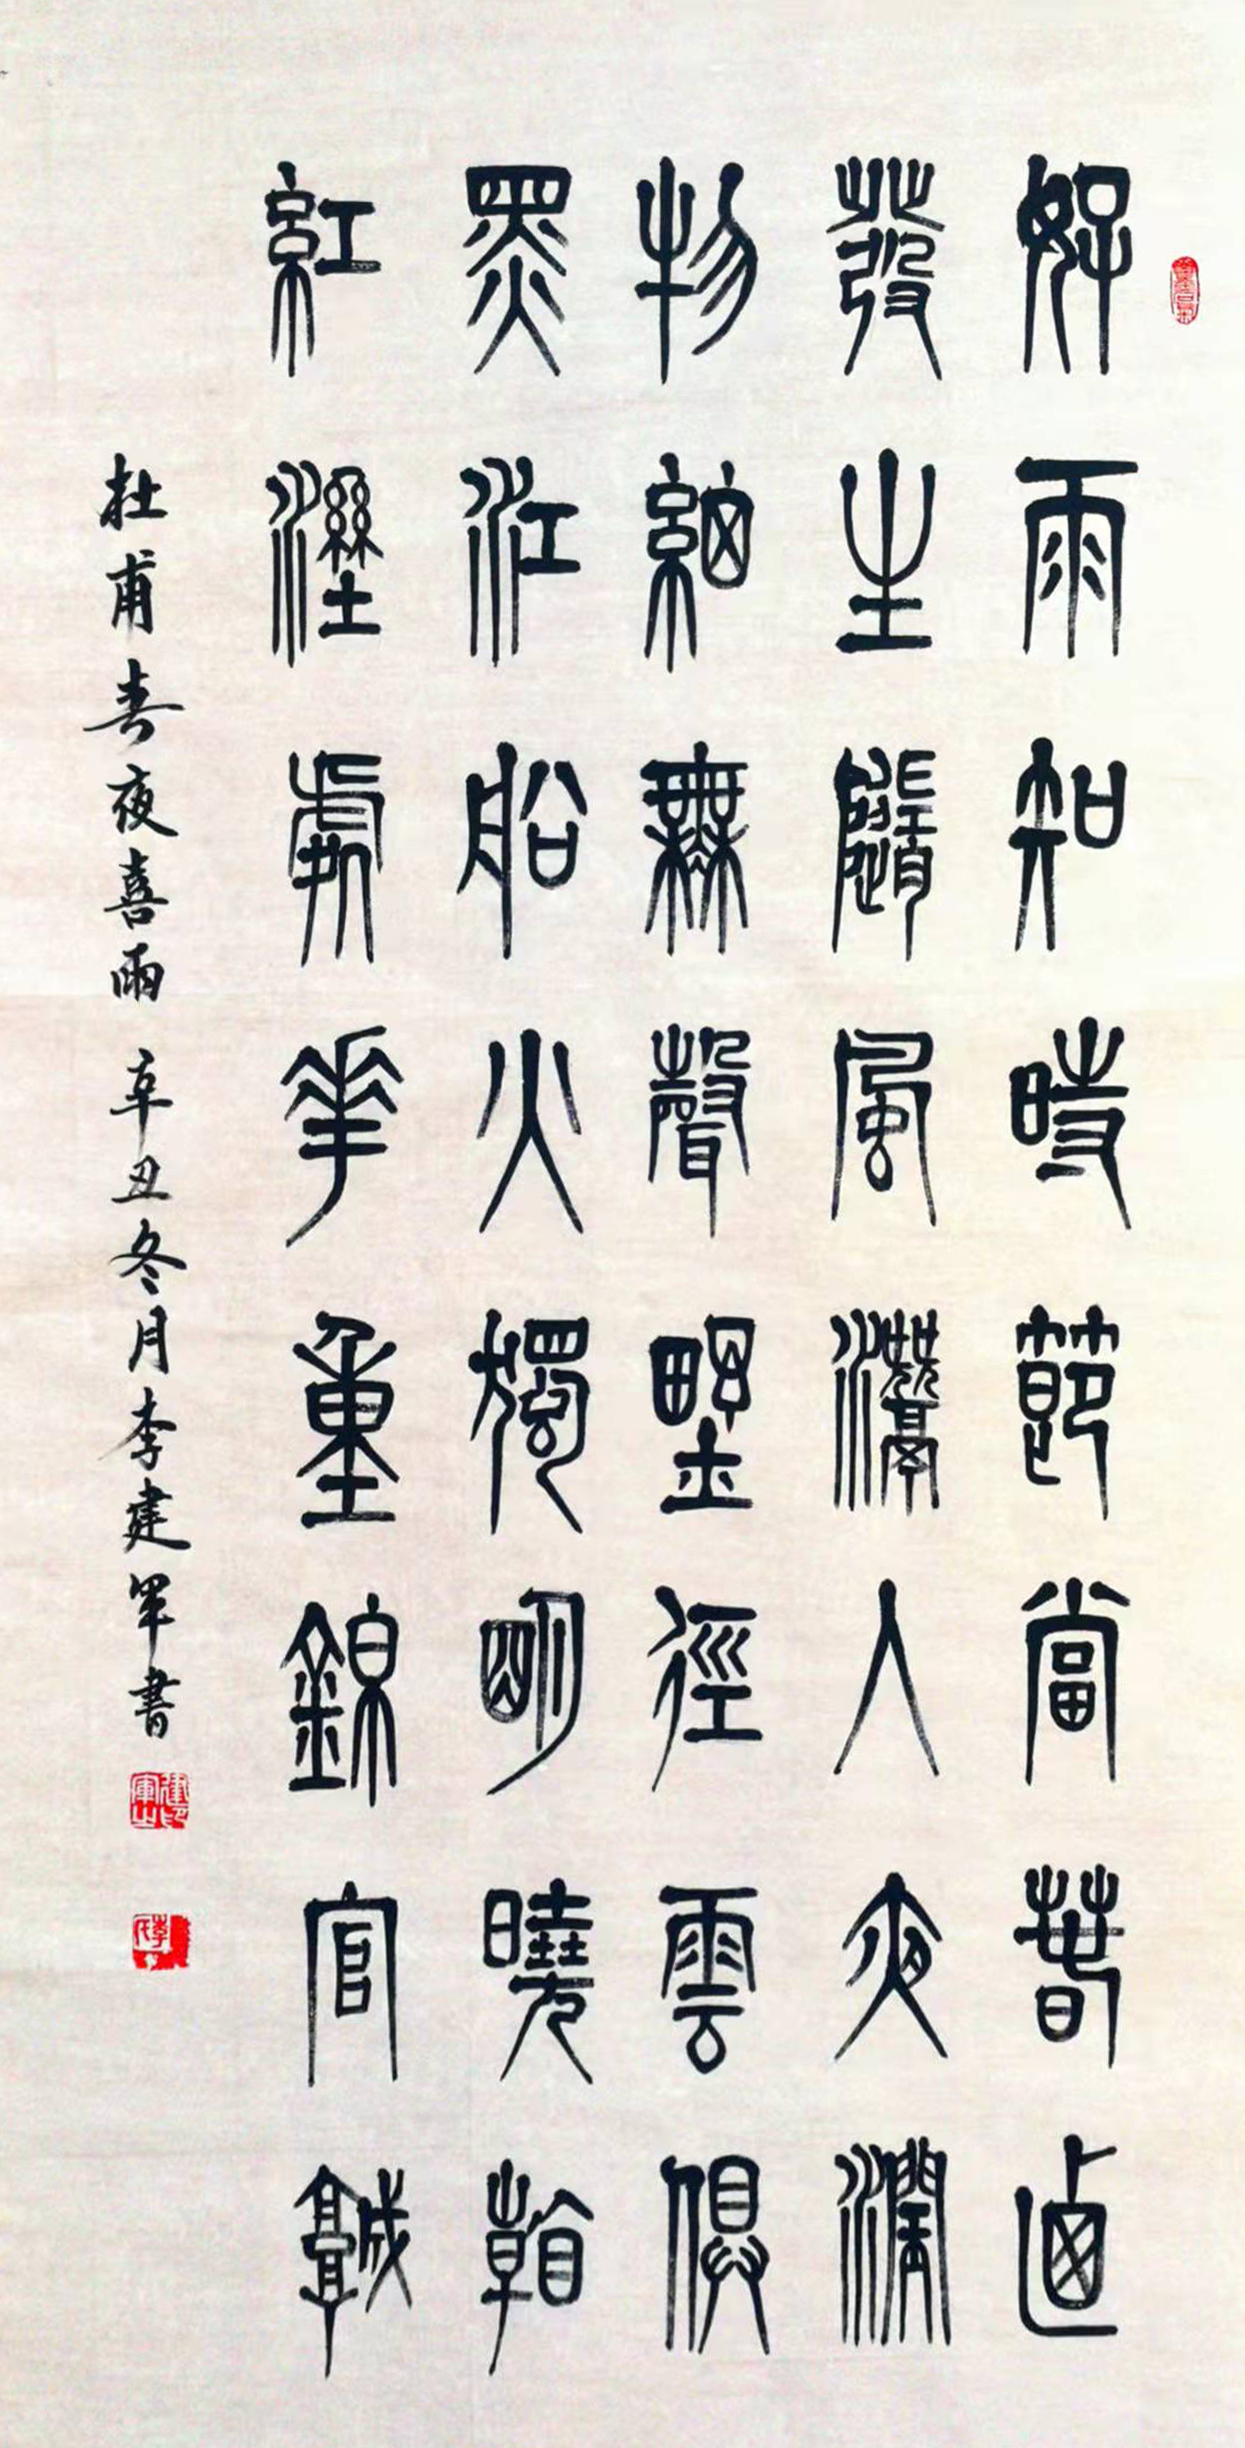 好雨知時節當春迺
發生隨風潛入夜潤
物細無聲野徑雲俱
黑江船火獨明曉看
紅溼處華重錦官城
杜甫春夜喜雨 辛丑冬月李建軍書
建軍之印